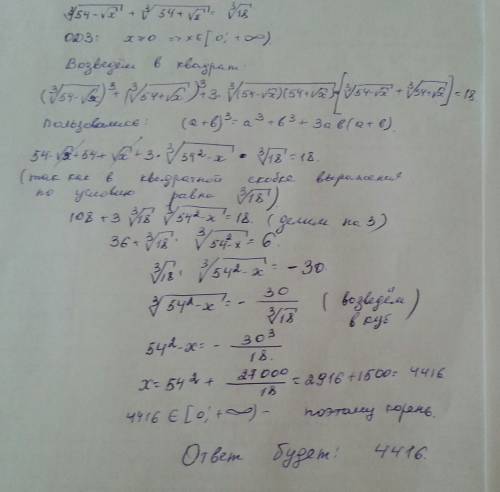 ∛(54-√x) + ∛(54+√x) = ∛18
ОДЗ: x≥0 ⇒ x∈[0; +∞).
Возведём в квадрат:
(∛(54-√x))³ + (∛(54+√x))³ + 3·∛((54-√x)(54+√x))·[∛(54-√x) + ∛(54+√x)] = 18
Пользовались: (a+b)³ = a³+b³+3ab(a+b).
54-√x+54+√x+3·∛(54²-x)·∛18 = 18.
(так как в квадратной скобке выражение
по условию равна ∛18)
108+3∛18 ∛(54²-x) = 18. (делим на 3)
36+∛18·∛(54²-x) = 6.
∛18·∛(54²-x) = -30
∛(54²-x) = -30/∛18 (возведём в куб)
54²-x = -30³/18.
x = 54² + 27000/18 = 2916+1500 = 4416
4416 ∈ [0; +∞) - поэтому корень.
Ответ будет: 4416.